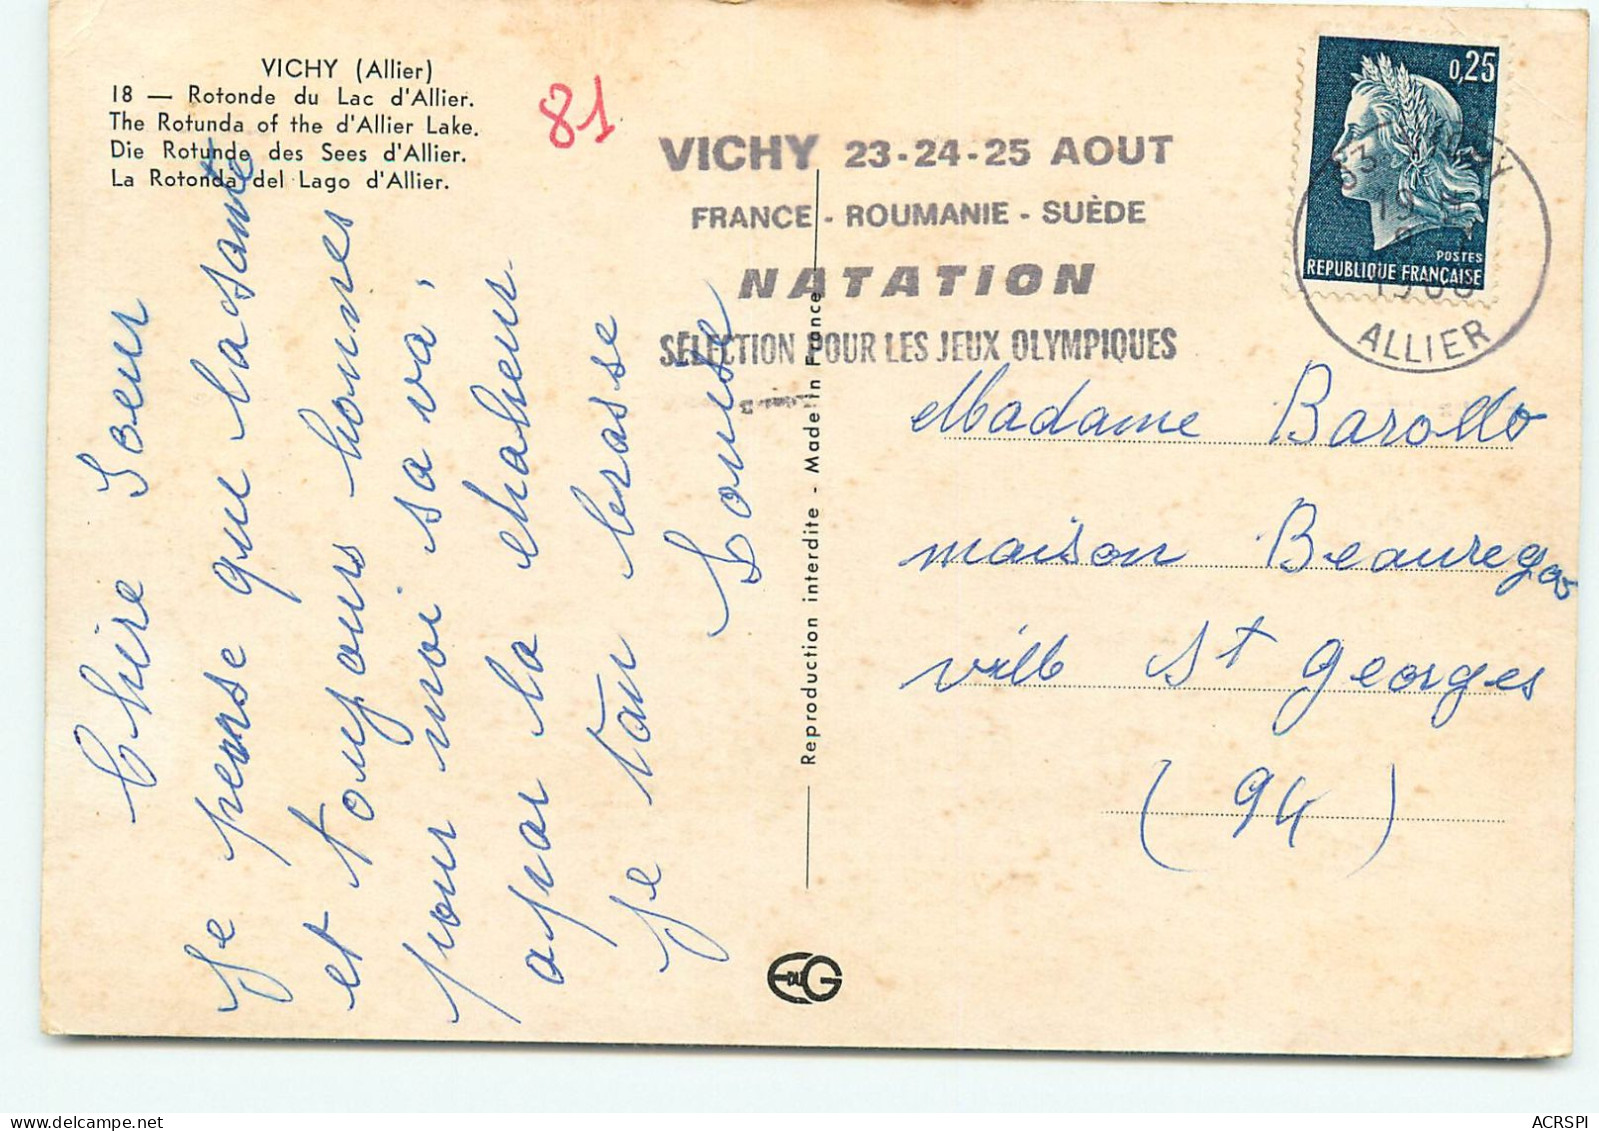 VICHY (Allier)
18 — Rotonde du Lac d'Allier.
The Rotunda of the d'Allier Lake.
Die Rotunde des Sees d'Allier.
La Rotonda del Lago d'Allier.
81
VICHY 23-24-25 AOUT
FRANCE - ROUMANIE - SUÈDE
NATATION
SÉLECTION POUR LES JEUX OLYMPIQUES
0,25
POSTES
REPUBLIQUE FRANÇAISE
ALLIER
Chère Soeur
Je pense que la santé
et toujours bonnes
pour moi sa va,
apar la chaleur
je tan brasse
Louise
Reproduction interdite - Made in France
E DU G
Madame Barollo
maison Beauregar
vill St Georges
(94)
ACRSPI